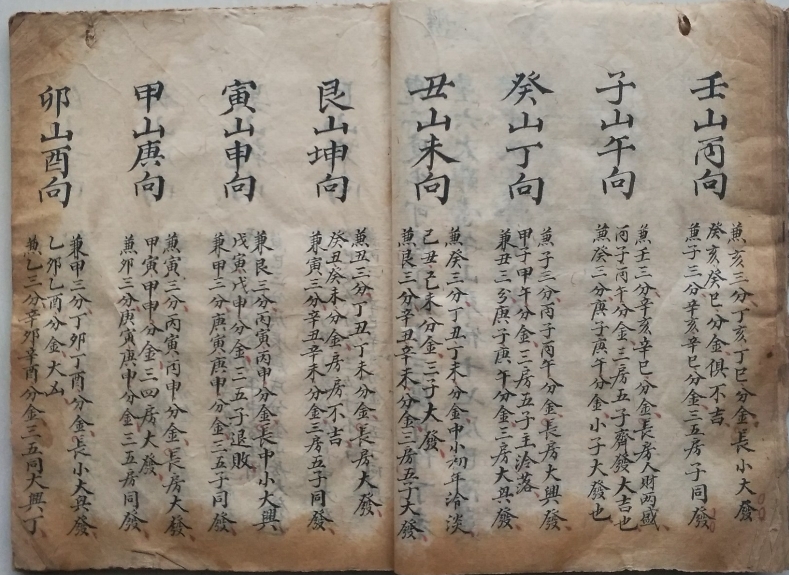 壬山丙向
兼亥三分丁亥丁巳分金長小大發
癸亥癸巳分金俱不吉
兼子三分辛亥辛巳分金三五房子同發
子山午向
兼壬三分辛亥辛巳分金長房人財两盛
丙子丙午分金三房五子齊發大吉也
兼癸三分庚子庚午分金小子大發也
癸山丁向
兼子三分丙子丙午分金長房大興發
甲子甲午分金三房五子主冷落
兼丑三分庚子庚午分金三房大興發
丑山未向
兼癸三分丁丑丁未分金中小初年冷淡
己丑己未分金三子大發
兼艮三分辛丑辛未分金三房五子大發
艮山坤向
兼丑三分丁丑丁未分金長房大發
癸丑癸未分金房房不吉
兼寅三分辛丑辛未分金三房五子同發
寅山申向
兼艮三分丙寅丙申分金長中小大興
戊寅戊申分金三五子退敗
兼甲三分庚寅庚申分金三五子同發
甲山庚向
兼寅三分丙寅丙申分金長房大發
甲寅甲申分金三四房大發
兼卯三分庚寅庚申分金三五房同發
卯山酉向
兼甲三分丁卯丁酉分金長小大興發
乙卯乙酉分金大凶
兼乙三分辛卯辛酉分金三五同大興丁